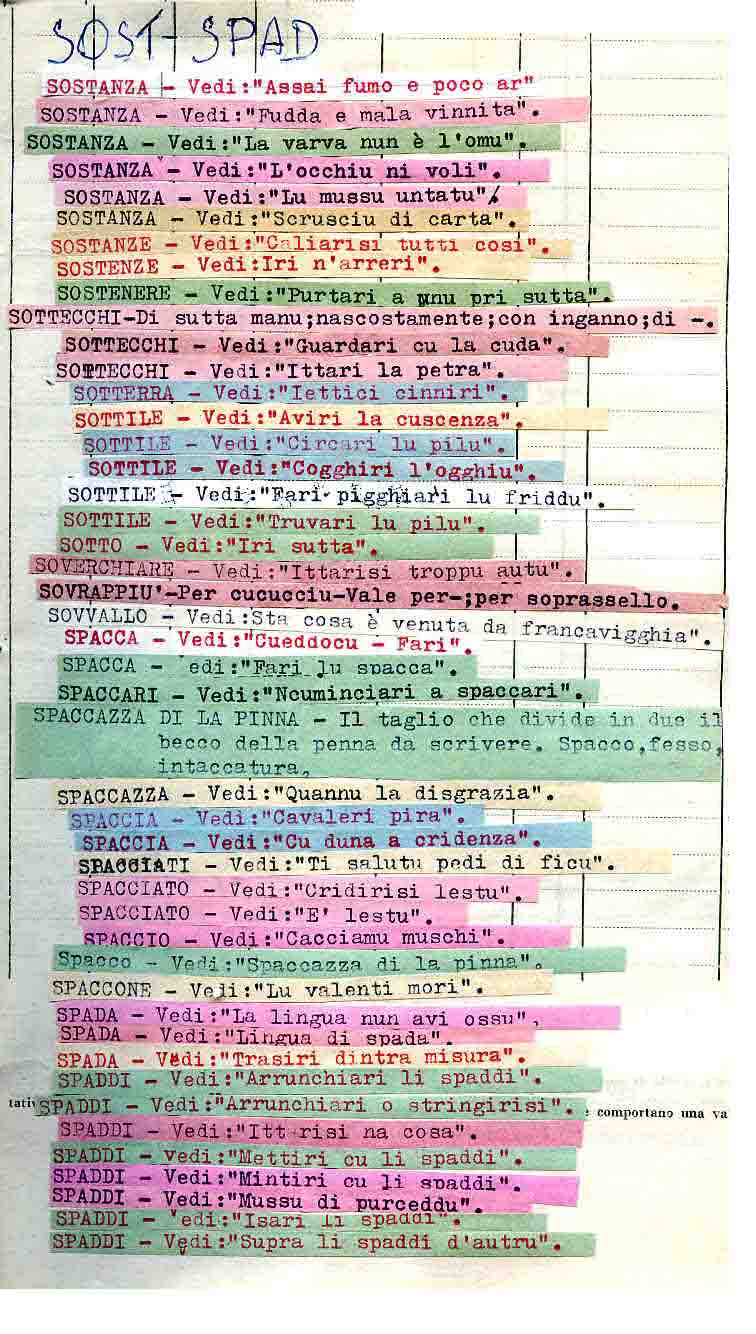 SOST-SPAD
SOSTANZA - Vedi:"Assai fumo e poco ar"
SOSTANZA - Vedi:"Fudda e mala vinnita".
SOSTANZA - Vedi:"La varva nun è l'omu".
SOSTANZA - Vedi:"L'occhiu ni voli".
SOSTANZA - Vedi:"Lu mussu untatu".
SOSTANZA - Vedi:"Scrusciu di carta".
SOSTANZE - Vedi:"Caliarisi tutti cosi".
SOSTENZE - Vedi:Iri n'arreri".
SOSTENERE - Vedi:"Purtari a unu pri sutta".
SOTTECCHI-Di sutta manu;nascostamente;con inganno;di -.
SOTTECCHI - Vedi:"Guardari cu la cuda".
SOTTECCHI - Vedi:"Ittari la petra".
SOTTERRA - Vedi:"Iettici cinniri".
SOTTILE - Vedi:"Aviri la cuscenza".
SOTTILE - Vedi:"Circari lu pilu".
SOTTILE - Vedi:"Cogghiri l'ogghiu".
SOTTILE - Vedi:"Fari pigghiari lu friddu".
SOTTILE - Vedi:"Truvari lu pilu".
SOTTO - Vedi:"Iri sutta".
SOVERCHIARE - Vedi:"Ittarisi troppu autu".
SOVRAPPIU'-Per cucucciu-Vale per-;per soprassello.
SOVVALLO - Vedi:Sta cosa è venuta da francavigghia".
SPACCA - Vedi:"Cueddocu - Fari".
SPACCA - edi:"Fari lu spacca".
SPACCARI - Vedi:"Ncuminciari a spaccari".
SPACCAZZA DI LA PINNA - Il taglio che divide in due il
becco della penna da scrivere. Spacco,fesso,
intaccatura,
SPACCAZZA - Vedi:"Quannu la disgrazia".
SPACCIA - Vedi:"Cavaleri pira".
SPACCIA - Vedi:"Cu duna a cridenza".
SPACCIATI - Vedi:"Ti salutu pedi di ficu".
SPACCIATO - Vedi:"Cridirisi lestu".
SPACCIATO - Vedi:"E' lestu".
SPACCIO - Vedi:"Cacciamu muschi".
Spacco - Vedi:"Spaccazza di la pinna".
SPACCONE - Vedi:"Lu valenti mori".
SPADA - Vedi:"La lingua nun avi ossu",
SPADA - Vedi:"Lingua di spada".
SPADA - Vedi:"Trasiri dintra misura".
SPADDI - Vedi:"Arrunchiari li spaddi".
tativ SPADDI - Vedi:"Arrunchiari o stringirisi". comportano una va
SPADDI - Vedi:"Itt risi na cosa".
SPADDI - Vedi:"Mettiri cu li spaddi".
SPADDI - Vedi:"Mintiri cu li spaddi".
SPADDI - Vedi:"Mussu di purceddu".
SPADDI - Vedi:"Isari li spaddi".
SPADDI - Vedi:"Supra li spaddi d'autru".